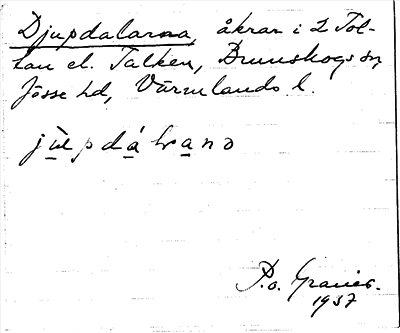 Djupdalarna, åkrar i 2 Tol-
kan el. Talken, Brunskogs sn,
Jösse hd, Värmlands l.
P.o. Granér.
1937